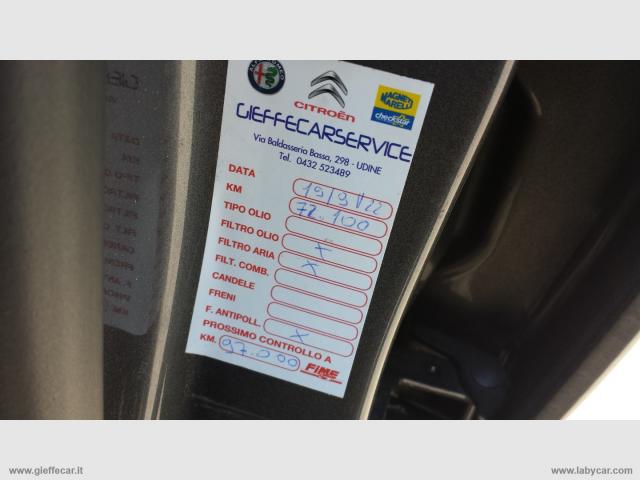 ALFA ROMEO
CITROËN
MAGNETI MARELLI
checkstar
GIEFFECARSERVICE
Via Baldasseria Bassa, 298 - UDINE
Tel. 0432 523489
DATA 19/9/22
KM 72.100
TIPO OLIO
FILTRO OLIO X
FILTRO ARIA X
FILT. COMB.
CANDELE
FRENI
F. ANTIPOLL. X
PROSSIMO CONTROLLO A
KM. 97.000 FIME
www.gieffecar.it
www.labycar.com